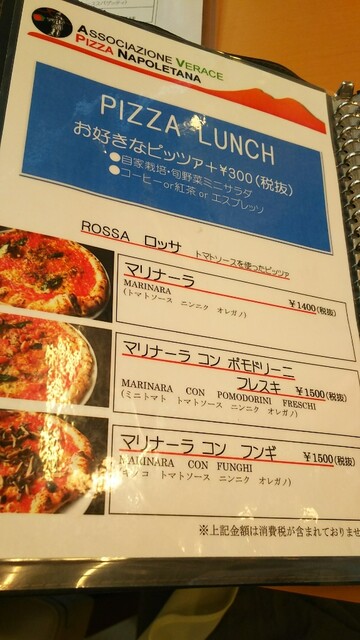 ASSOCIAZIONE VERACE
PIZZA NAPOLETANA
PIZZA LUNCH
お好きなピッツァ+¥300(税抜)
●自家栽培・旬野菜ミニサラダ
●コーヒーor紅茶 or エスプレッソ
ROSSA ロッサ トマトソースを使ったピッツァ
マリナーラ
MARINARA ¥1400(税抜)
(トマトソース ニンニク オレガノ)
マリナーラ コン ポモドリーニ
フレスキ ¥1500(税抜)
MARINARA CON POMODORINI FRESCHI
(ミニトマト トマトソース ニンニク オレガノ)
マリナーラ コン フンギ
MARINARA CON FUNGHI ¥1500(税抜)
キノコ トマトソース ニンニク オレガノ)
※上記金額は消費税が含まれておりませ